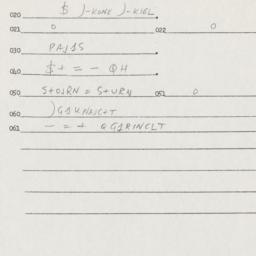 020 $ )-KONK )-KIEL.
021 0 022 0
030 PAJ1S
040 $ + = - QH
050 S+OJRN = S+URN 051 0
060 )G1KNAIC+T
061 - = + QG1RINCLT